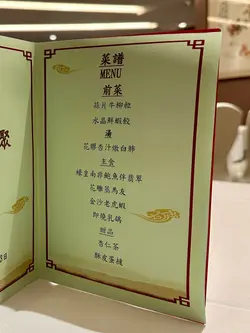 菜譜
MENU
前菜
蒜片牛柳粒
水晶鮮蝦餃
湯
花膠杏汁燉白肺
主食
蠔皇南非鮑魚伴翡翠
花雕蒸馬友
金沙老虎蝦
即燒乳鴿
甜品
杏仁茶
酥皮蛋撻
聚